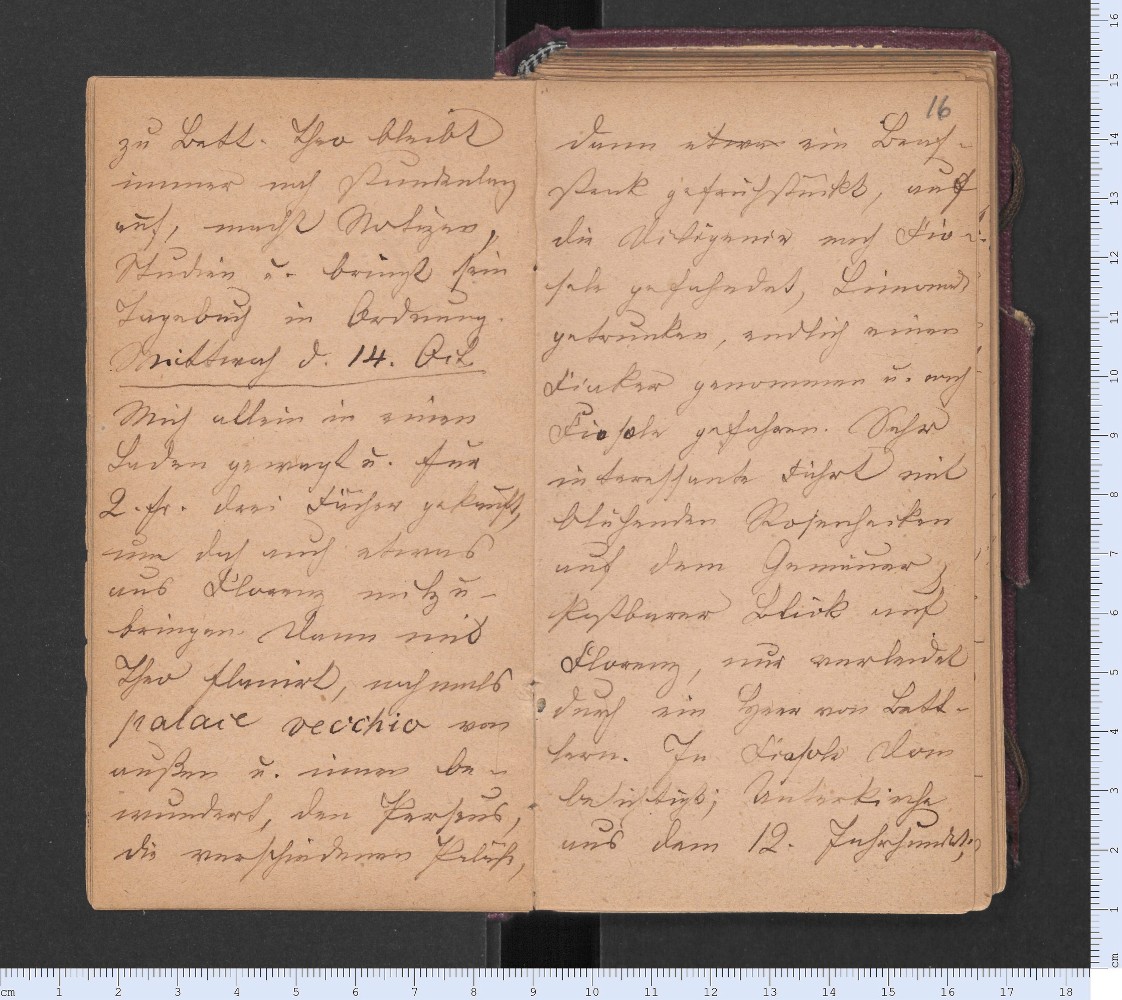 zu Bett. Theo bleibt
immer noch stundenlang
auf, macht Notizen,
Studien u. bringt sein
Tagebuch in Ordnung.
Mittwoch d. 14. Oct.
Mich allein in einen
Laden gewagt u. für
2. fr. drei Fächer gekauft,
um doch auch etwas
aus Florenz mitzu-
bringen. Dann mit
Theo flanirt, nochmals
palace vecchio von
außen u. innen be-
wundert, den Perseus,
die verschiedenen Paläste,
16
dann etwa ein Beaf-
steak gefrühstückt, auf
die nach Fie-
sole gefahndet, Limonade
getrunken, endlich einen
Fiaker genommen u. nach
Fiesole gefahren. Sehr
interessante Fahrt mit
blühenden Rosenhecken
auf dem Gemäuer,
kostbarer Blick auf
Florenz, nur verleidet
durch ein Heer von Bett-
lern. In Fiesole Dom
besichtigt; Unterkirche
aus dem 12. Jahrhundert;